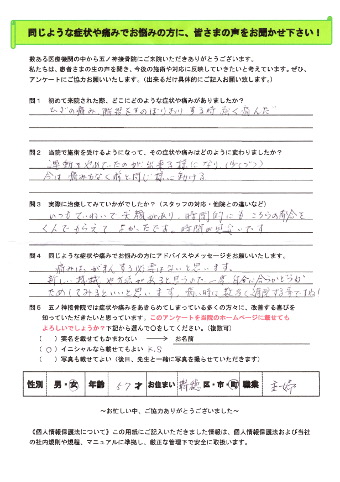 同じような症状や痛みでお悩みの方に、皆さまの声をお聞かせ下さい！
数ある医療機関の中から五ノ神接骨院にご来院いただきありがとうございます。
私たちは、患者さまの生の声を聞き、今後の施術や対応に反映していきたいと考えています。ぜひ、
アンケートにご協力お願いいたします。（出来るだけ具体的にご記入お願い致します。）
問１ 初めて来院された際、どこにどのような症状や痛みがありましたか？
ひざの痛み、階段をのぼりおりする時
問２ 当院で施術を受けるようになって、その症状や痛みはどのように変わりましたか？
運動をやめてたのが出来る様になり、
今は痛みなく前と同じ様に動ける
問３ 実際に治療してみていかがでしたか？（スタッフの対応・他院との違いなど）
いつもていねいで笑顔があり、時間的にもこちらの都合を
くんでもらえて よかったです。時間が
問４ 同じような症状や痛みでお悩みの方にアドバイスやメッセージをお願いいたします。
痛みは、がまんする必要はないと思います。
ためしてみるといいと思います。
問５ 五ノ神接骨院では症状や痛みをあきらめてしまっている多くの方々に、改善する喜びを
知っていただきたいと思っています。このアンケートを当院のホームページに載せても
よろしいでしょうか？下記から選んで○をしてください。（複数可）
（　）実名を載せてもかまわない → お名前
（○）イニシャルなら載せてもよい K.S
（　）写真も載せてよい（後日、先生と一緒に写真を撮らせていただきます）
性別 男・女 年齢 67才 お住まい 瑞穂 区・市・町 職業 主婦
～お忙しい中、ご協力ありがとうございました～
《個人情報保護法について》この用紙にご記入いただきました情報は、個人情報保護法および当社
の社内規則や規程、マニュアルに準拠し、厳正な管理下で安全に取扱います。